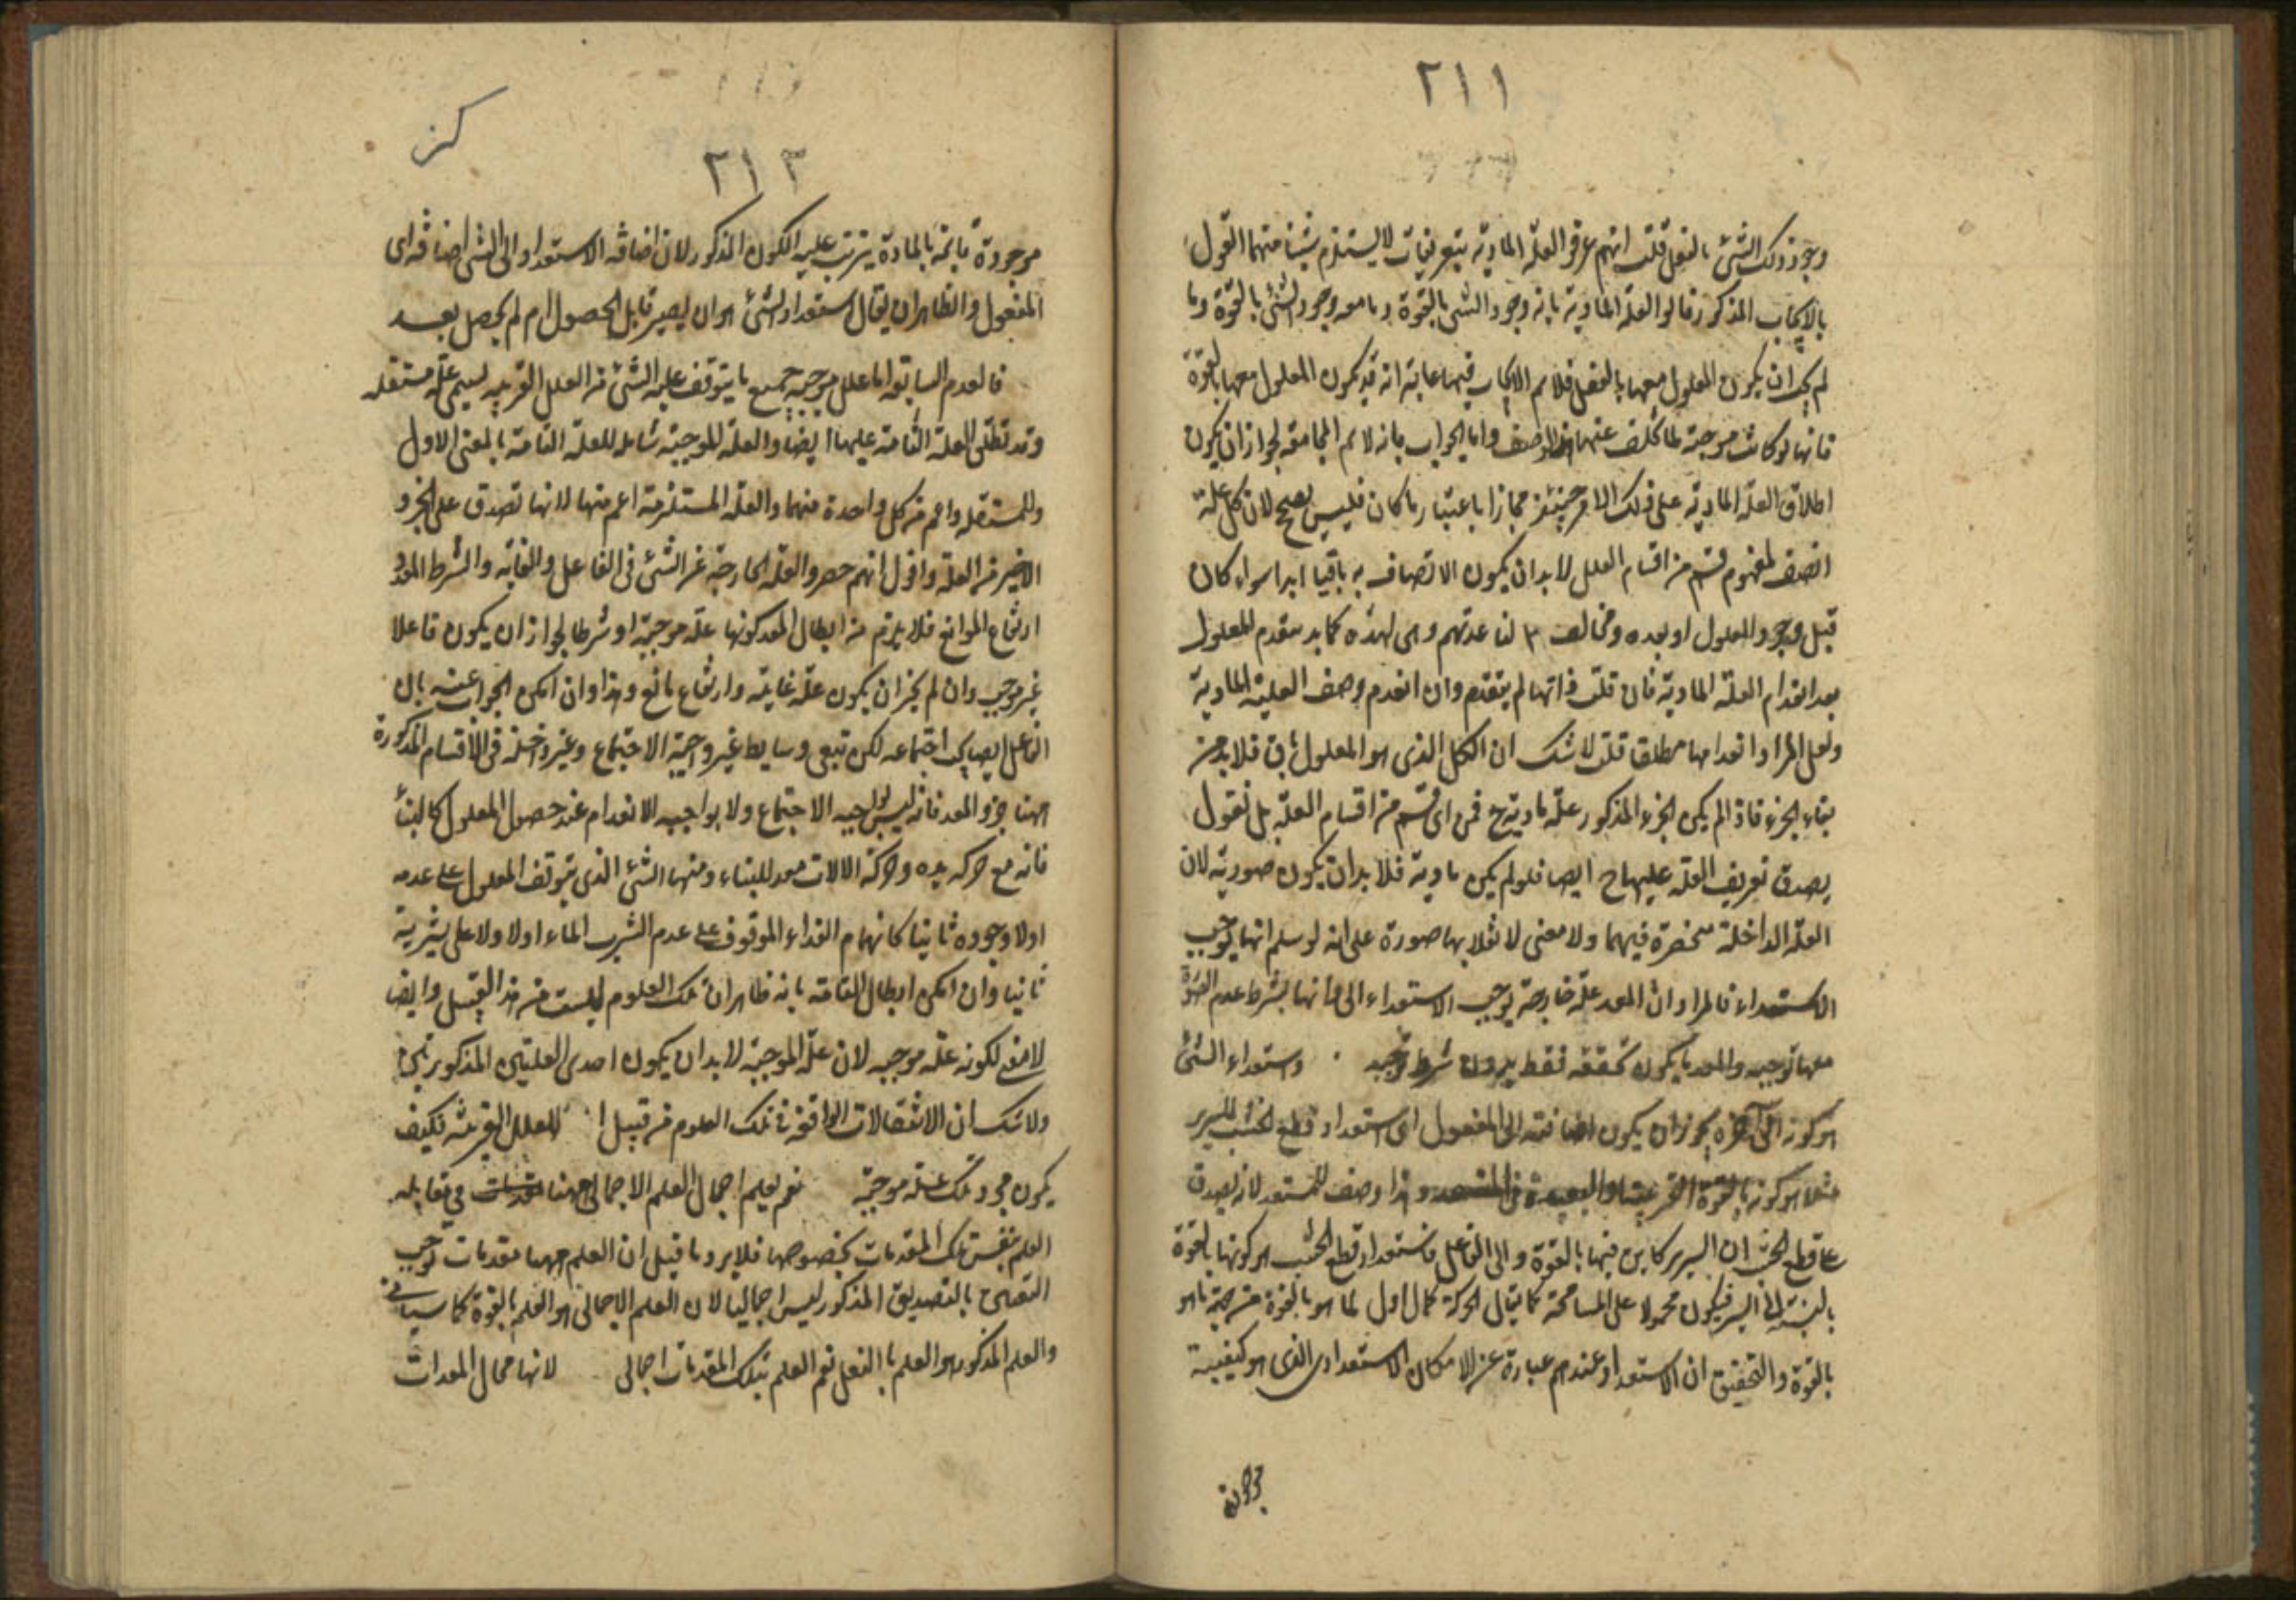 ٢١١
وجود ذلك الشئ بالفعل قلت انهم عرفوا العلة المادية بتعريفات لا يستلزم شيئا منهما القول
بالايجاب المذكور فقالوا العلة المادية ما به وجود الشئ بالقوة وما معه وجود الشئ بالقوة وما
لم يجب ان يكون المعلول معها بالفعل فلا نم الايجاب فيها غايته انه قد يكون المعلول معها بالقوة
فانها لو كانت موجبة لما تخلف عنها واما الجواب بانه لا نم المجامعة لجواز ان يكون
اطلاق العلة المادية على ذلك الامر حينئذ مجازا باعتبار ما كان فليس بصحيح لان كل علة
اتصف لمفهوم قسم من اقسام العلل لا بد ان يكون الاتصاف به باقيا ابدا سواء كان
قبل وجود المعلول او بعده ومخالف لقاعدتهم وهى لهذه كما بد متقدم للمعلول
بعد انعدام العلة المادية فان قلت ذاتها لم يتقدم وان انعدم وصف العلية المادية
ولعل المراد انعدامها مطلقا قلت لا شك ان الكل الذى هو المعلول باق فلا بد من
بقاء الجزء فاذا لم يكن الجزء المذكور علة مادية ح فمن اى قسم من اقسام العلة بل نقول
يصدق تعريف العلة عليها ح ايضا فلو لم يكن مادية فلا بد ان يكون صورية لان
العلة الداخلة منحصرة فيهما ولا معنى لانقلابها صورة على انه لو سلم انها يوجب
الاستعداد فالمراد ان المعد علة خارجة يوجب الاستعداد الى فانها بشرط عدم الصورة
معها توجبه والمعد ما يكون تحققه فقط بدون شرط توجبه واستعداد الشئ
هو كونه الى آخره يجوز ان يكون اضافته الى المفعول اى استعداد قطع الخشب للسرير
مثلا هو كونه بالقوة القريبة او البعيدة وهذا وصف للمستعد لانه يصدق
على قطع الخشب ان السرير كاين فيها بالقوة والى الفاعل فاستعداد قطع الخشب هو كونها بالقوة
بالنسبة الى السرير فيكون محمولا على المسامحة كما يقال الحركة كمال اول لما هو بالقوة من جهة ما هو
بالقوة والتحقيق ان الاستعداد عندهم عبارة عن الامكان الاستعدادى الذى هو كيفية
موجودة
٢١٣
موجودة قائمة بالمادة يترتب عليه الكون المذكور لان اضافة الاستعداد الى الشئ اضافة اى
المفعول والظاهر ان يقال استعداد الشئ هو ان يصير قابل الحصول ان لم يحصل بعد
فالعدم السابق اما علل موجبة جميع ما يتوقف عليه الشئ من العلل القريبة يسمى علة مستقلة
وقد تطلق العلة التامة عليها ايضا والعلة الموجبة شاملة للعلة التامة بالمعنى الاول
وللمستقلة واعم من كل واحدة منهما والعلة المستلزمة اعم منها لانها تصدق على الجزء
الاخير من العلة واقول انهم حصروا العلة الخارجة عن الشئ فى الفاعل والغاية والشرط المعد و
ارتفاع الموانع فلا يلزم من ابطال المعد كونها علة موجبة او شرطا لجواز ان يكون فاعلا
غير موجب وان لم يجز ان يكون علة غائية وارتفاع مانع وهذا وان امكن الجواب عنه بان
الفاعل ايضا يجب اجتماعه لكن تبقى وسايط غير واجبة الاجتماع وغير داخلة فى الاقسام المذكورة
منها جزء المعد فانه ليس بواجب الاجتماع ولا بواجب الانعدام عند حصول المعلول كالبناء
فانه مع حركة يده وحركة الالات معد للبناء ومنها الشئ الذى يتوقف المعلول على عدمه
اولا ووجوده ثانيا كانهضام الغذاء الموقوف على عدم الشرب الماء اولا ولا على شربه
ثانيا وان امكن ابطال القامة بانه ظاهر ان تلك العلوم ليست من هذا القبيل وايضا
لا معنى لكونه علة موجبة لان علة الموجبة لا بد ان يكون احدى العلتين المذكورتين
ولا شك ان الانتقالات الواقعة فى تلك العلوم من قبيل العلل القريبة فكيف
يكون مجرد تلك علة موجبة نعم يعلم اجمال العلم الاجمالى ههنا فى مقابلة
العلم بنفس تلك المقدمات بخصوصها فلا يرد ما قيل ان العلم ههنا مقدمات توجب
التصديق بالتصديق المذكور ليس اجماليا لان العلم الاجمالى هو العلم بالقوة كما سياتى
والعلم المذكور هو العلم بالفعل نعم العلم بتلك المقدمات اجمالى لانها محال المعدات